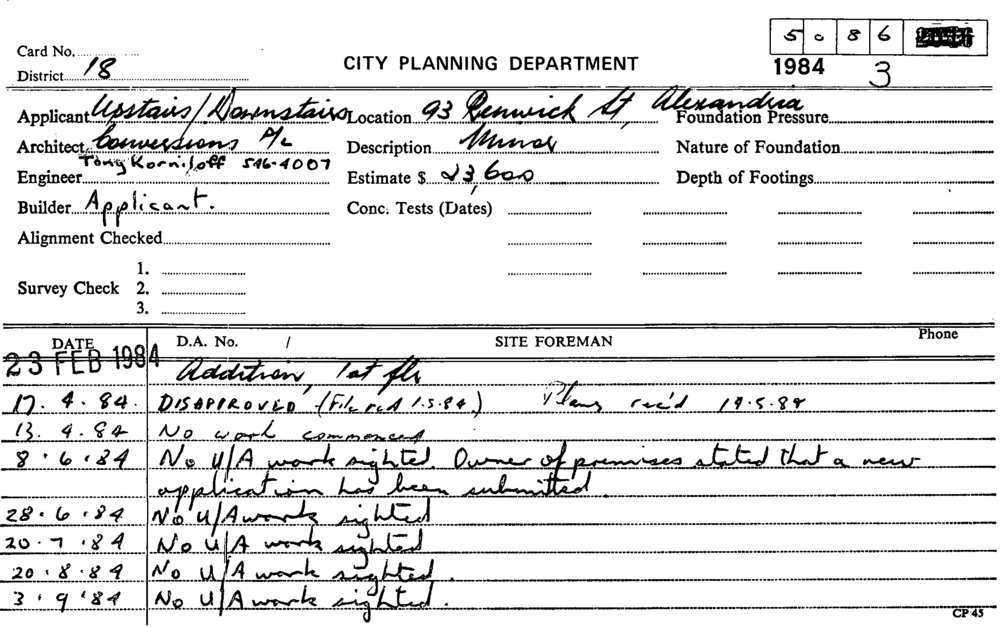 5 0 8 6
Card No.
District 18
CITY PLANNING DEPARTMENT
1984 3
Applicant Upstairs/Downstairs Location 93 Renwick St, Alexandria
Foundation Pressure
Architect Conversions P/L Description Minor Nature of Foundation
Tony Korniloff 516-4007
Engineer Estimate $ 23,600 Depth of Footings
Builder Applicant. Conc. Tests (Dates)
Alignment Checked
1.
Survey Check 2.
3.
DATE D.A. No. / SITE FOREMAN Phone
23 FEB 1984 Addition, 1st flr
17. 4. 84. DISAPPROVED (File rcd 1.5.84.) Plans rec'd 19.5.84
13. 4. 84 No work commenced
8.6.84 No U/A work sighted. Owner of premises stated that a new
application has been submitted.
28.6.84 No U/A work sighted
20.7.84 No U/A work sighted
20.8.84 No U/A work sighted.
3.9.84 No U/A work sighted.
CP 45